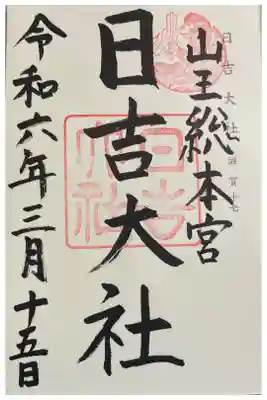 山王総本宮
日吉大社
令和六年三月十五日
日吉大社